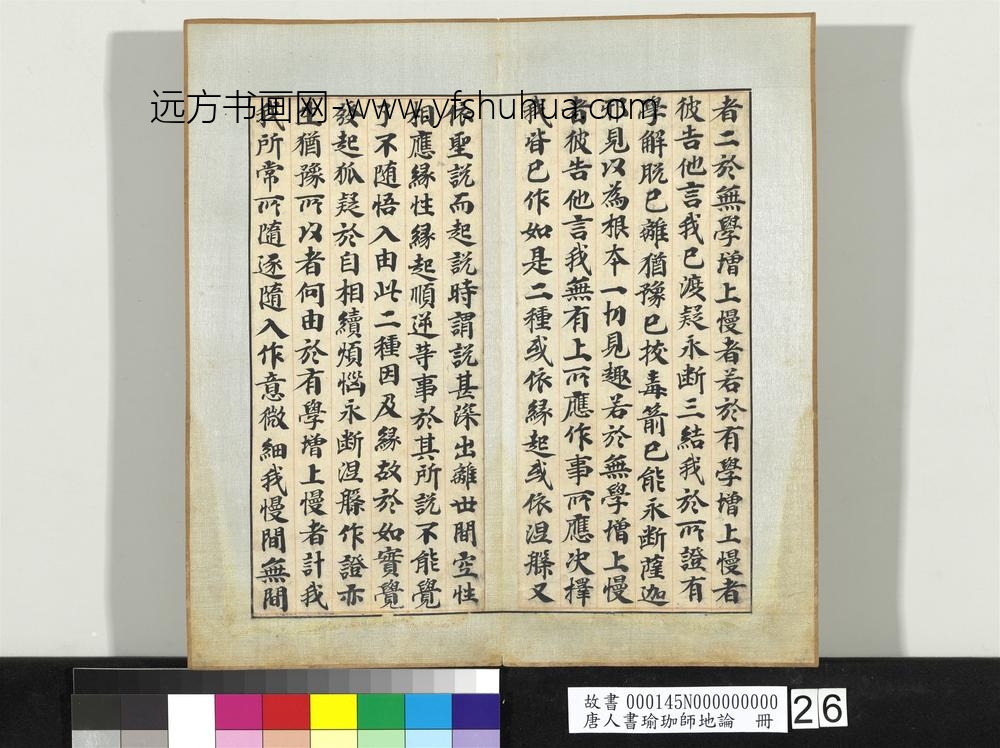 远方书画网-www.yfshuhua.com
者二於無學增上慢者若於有學增上慢者
彼告他言我已渡疑永断三結我於所證有
學解脫已離猶豫已拔毒箭已能永断薩迦
耶見以為根本一切見趣若於無學增上慢
者彼告他言我無有上所應作事所應決擇
我皆已作如是二種或依緣起或依涅槃又
依聖説而起説時謂説甚深出離世間空性
相應緣性緣起順逆等事於其所説不能覺
了不随悟入由此二種因及緣故於如實覺
發起狐疑於自相續煩惱永断涅槃作證亦
猶豫所以者何由於有學增上慢者計我
我所常所隨逐隨入作意微細我慢間無間
故書 000145N000000000
唐人書瑜珈師地論 冊
26